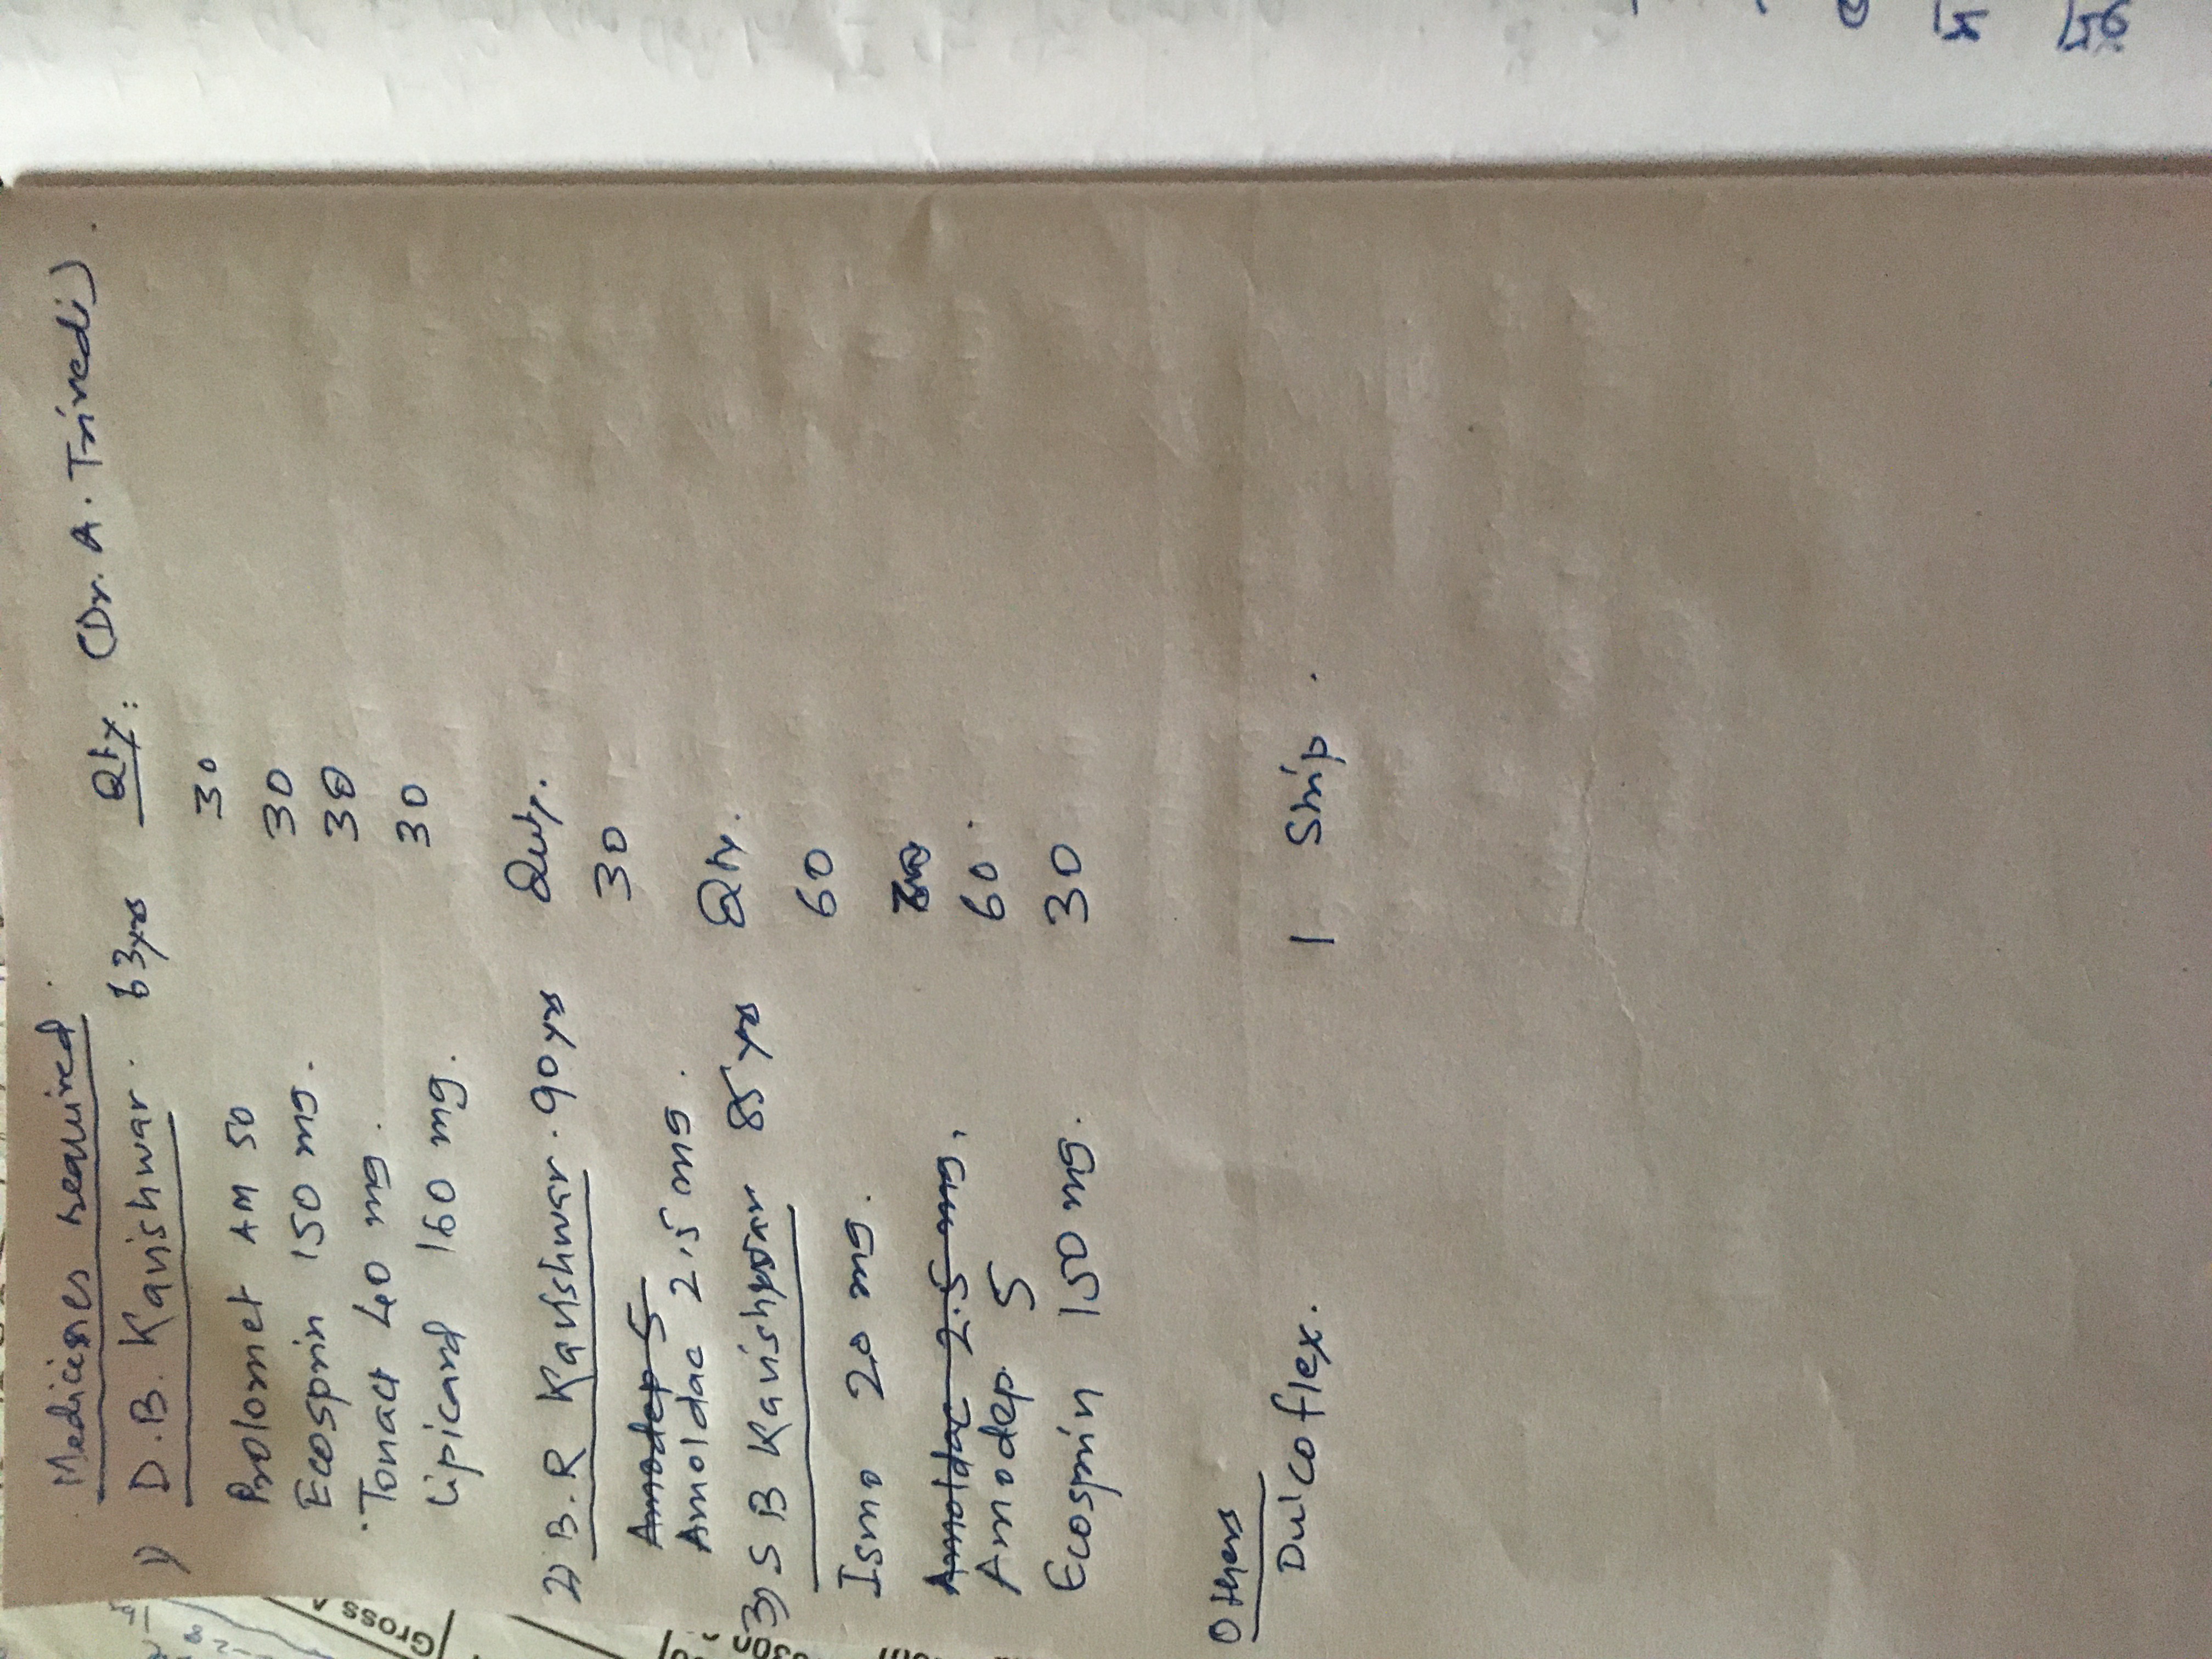 Medicines required.
1) D.B. Kavishwar. 63yrs Qty: (Dr. A. Trivedi).
Prolomet AM 50 30
Ecosprin 150 mg. 30
Tonact 40 mg. 30
Lipicard 160 mg. 30
2) B.R Kavishwar. 90yrs Quty.
Amodep 5 30
Amoldac 2.5 mg.
3) S B Kavishwar 85 yrs Qty.
Ismo 20 mg. 60
Amoldac 2.5 mg.
Amodep 5 60.
Ecosprin 150 mg. 30
Others
Dulcoflex. 1 Strip.
Gross